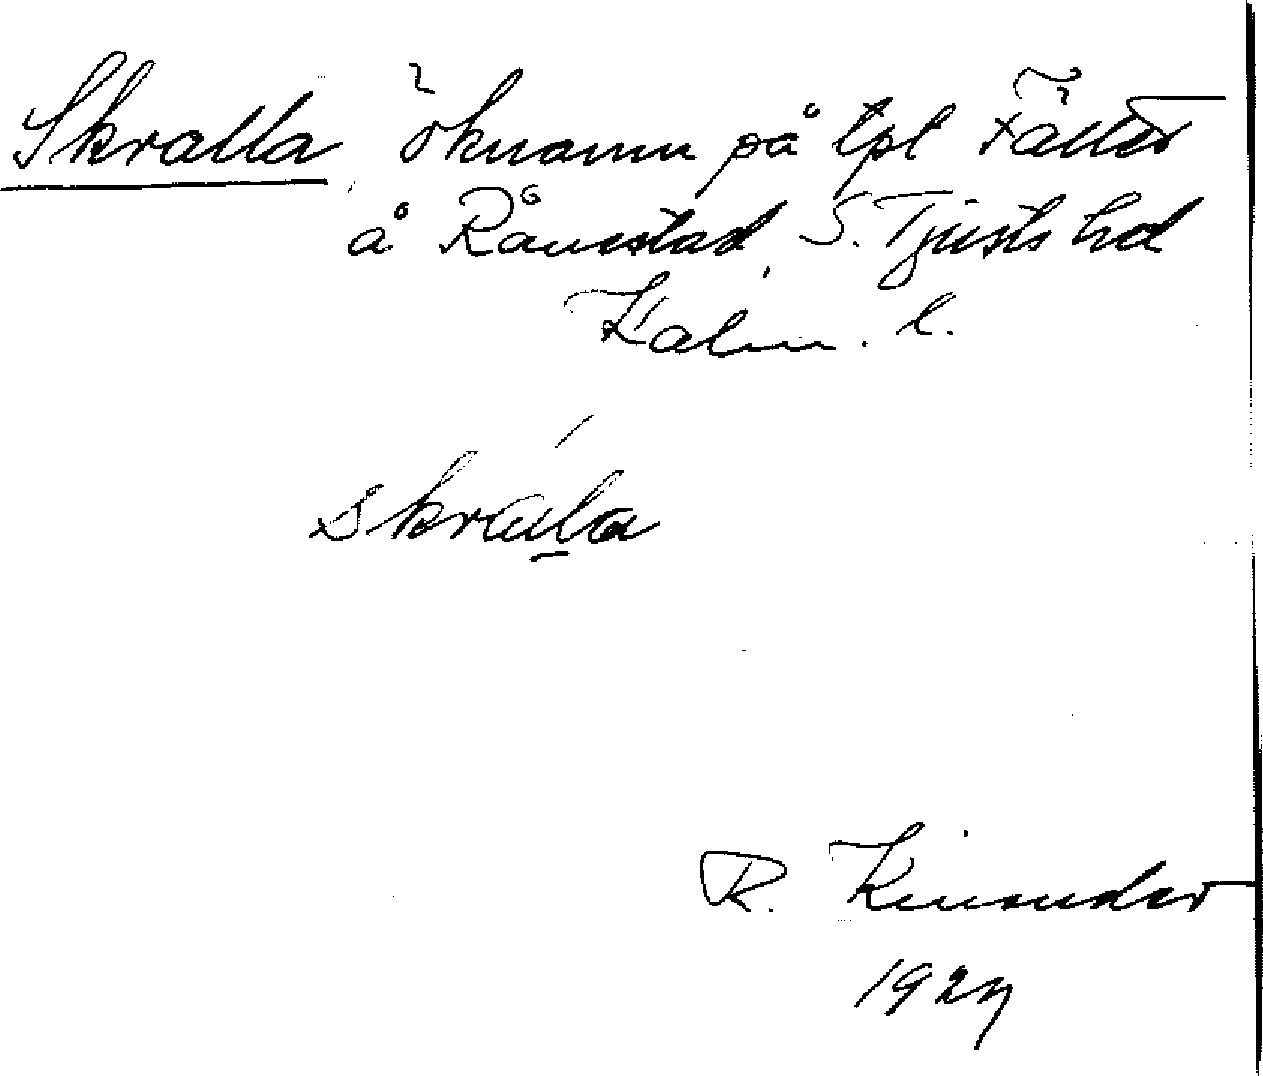 Skralla, öknamn på lpl Fäller
å Rånestad, S. Tjusts hd
Kalm. l.
skrala
R. Kinander
1927